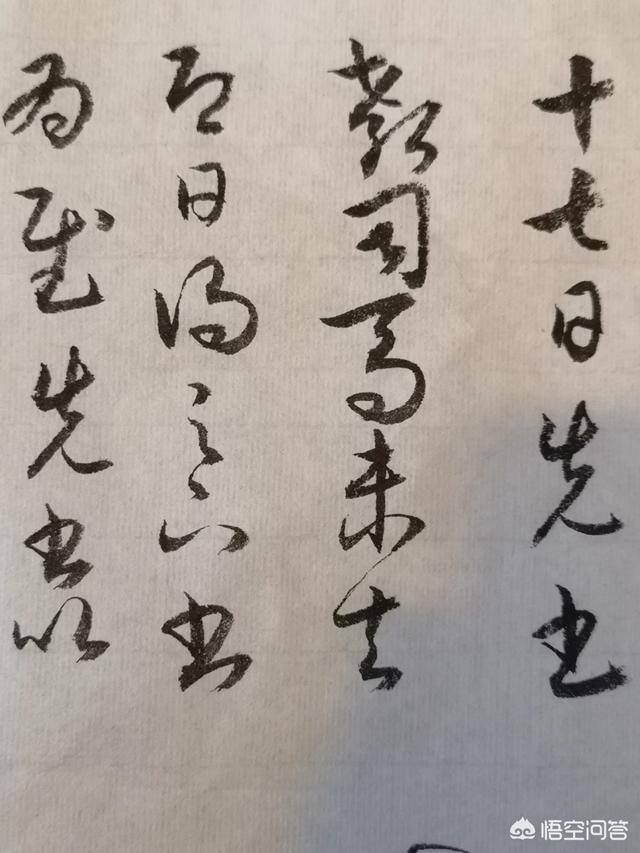 十七日先书
郗司马未去
即日得足下书
为慰先书以
悟空问答